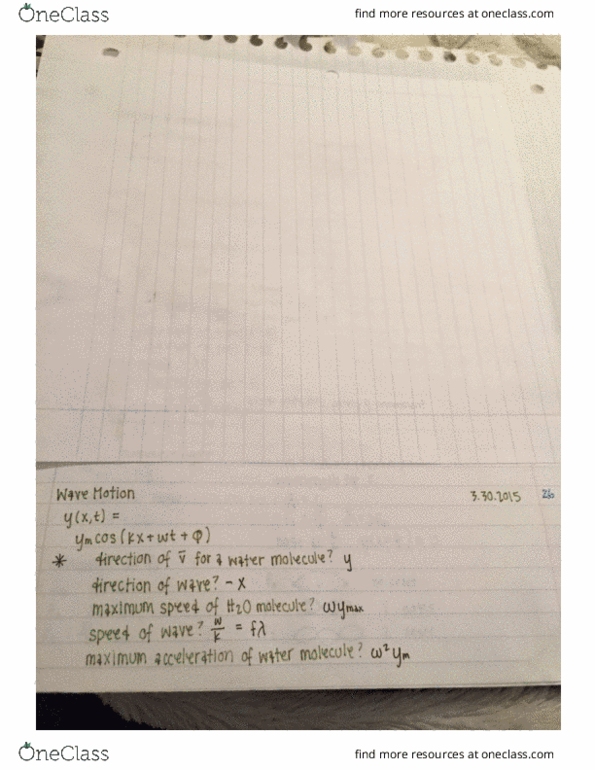 OneClass
find more resources at oneclass.com
Wave Motion 3.30.2015 26
y(x,t) =
yₘ cos(kx+ωt+φ)
* direction of v̄ for a water molecule? y
direction of wave? -x
maximum speed of H₂O molecule? ωyₘₐₓ
speed of wave? ω/k = fλ
maximum acceleration of water molecule? ω²yₘ
OneClass
find more resources at oneclass.com